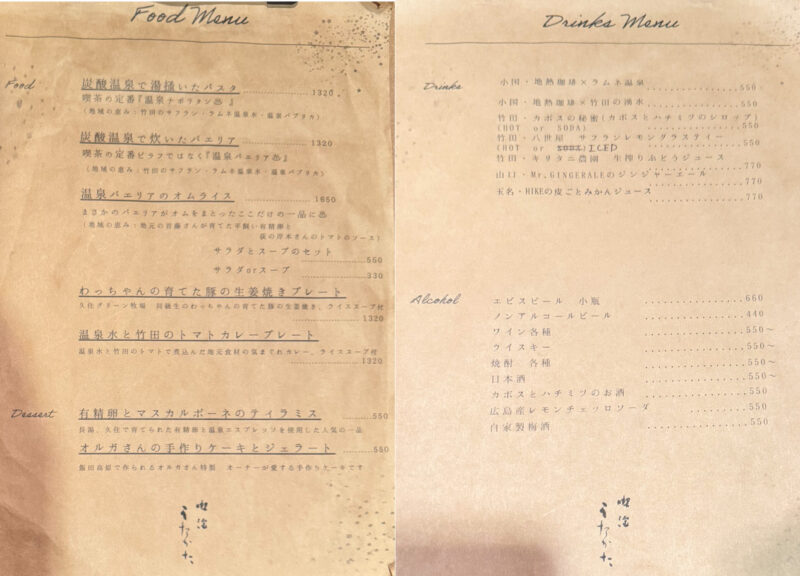 Food Menu
Food
炭酸温泉で湯掻いたパスタ
1320
喫茶の定番『温泉ナポリタン♨』
(地域の恵み:竹田のサフラン・ラムネ温泉水・温泉パプリカ)
炭酸温泉で炊いたパエリア
1320
喫茶の定番ピラフではなく『温泉パエリア♨』
(地域の恵み:竹田のサフラン・ラムネ温泉水・温泉パプリカ)
温泉パエリアのオムライス
1650
まさかのパエリアがオムをまとったここだけの一品に♨
(地域の恵み:地元の首藤さんが育てた平飼い有精卵と
荻の岸本さんのトマトのソース)
サラダとスープのセット
550
サラダorスープ
330
わっちゃんの育てた豚の生姜焼きプレート
久住グリーン牧場 同級生のわっちゃんの育てた豚の生姜焼き、ライススープ付
1320
温泉水と竹田のトマトカレープレート
温泉水と竹田のトマトで煮込んだ地元食材の気まぐれカレー、ライススープ付
1320
Dessert
有精卵とマスカルポーネのティラミス
550
長湯、久住で育てられた有精卵と温泉エスプレッソを使用した人気の一品
オルガさんの手作りケーキとジェラート
550
飯田高原で作られるオルガさん特製 オーナーが愛する手作りケーキです
喫治
うたかた、
Drinks Menu
Drinks
小国・地熱珈琲×ラムネ温泉
550
小国・地熱珈琲×竹田の湧水
550
竹田・カボスの秘密(カボスとハチミツのシロップ)
(HOT or SODA)
550
竹田・八世屋 サフランレモングラスティー
(HOT or ICED
550
竹田・キリタニ農園 生搾りぶどうジュース
770
山口・Mr.GINGERALEのジンジャーエール
770
玉名・HIKEの皮ごとみかんジュース
770
Alcohol
エビスビール 小瓶 660
ノンアルコールビール 440
ワイン各種 550〜
ウイスキー 550〜
焼酎 各種 550〜
日本酒 550〜
カボスとハチミツのお酒 550
広島産レモンチェッロソーダ 550
自家製梅酒 550
喫治
うたかた、